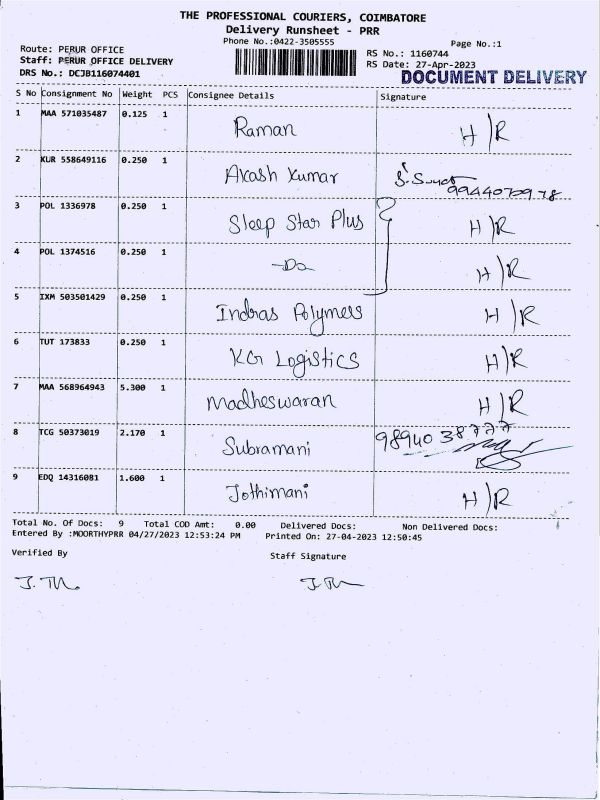 THE PROFESSIONAL COURIERS, COIMBATORE
Delivery Runsheet - PRR
Phone No.:0422-3505555
Page No.:1
Route: PERUR OFFICE
RS No.: 1160744
Staff: PERUR OFFICE DELIVERY
RS Date: 27-Apr-2023
DRS No.: DCJB116074401
DOCUMENT DELIVERY
S No Consignment No Weight PCS Consignee Details Signature
1 MAA 571035487 0.125 1 Raman H)R
2 KUR 558649116 0.250 1 Akash Kumar
3 POL 1336978 0.250 1 Sleep Star Plus H)R
4 POL 1374516 0.250 1 -Do H)R
5 IXM 503501429 0.250 1 Indras Polymers H)R
6 TUT 173833 0.250 1 KG Logistics H)R
7 MAA 568964943 5.300 1 Madheswaran H)R
8 TCG 50373019 2.170 1 Subramani 9894038777
9 EDQ 14316081 1.600 1 Jothimani H)R
Total No. Of Docs: 9 Total COD Amt: 0.00 Delivered Docs: Non Delivered Docs:
Entered By :MOORTHYPRR 04/27/2023 12:53:24 PM Printed On: 27-04-2023 12:50:45
Verified By Staff Signature